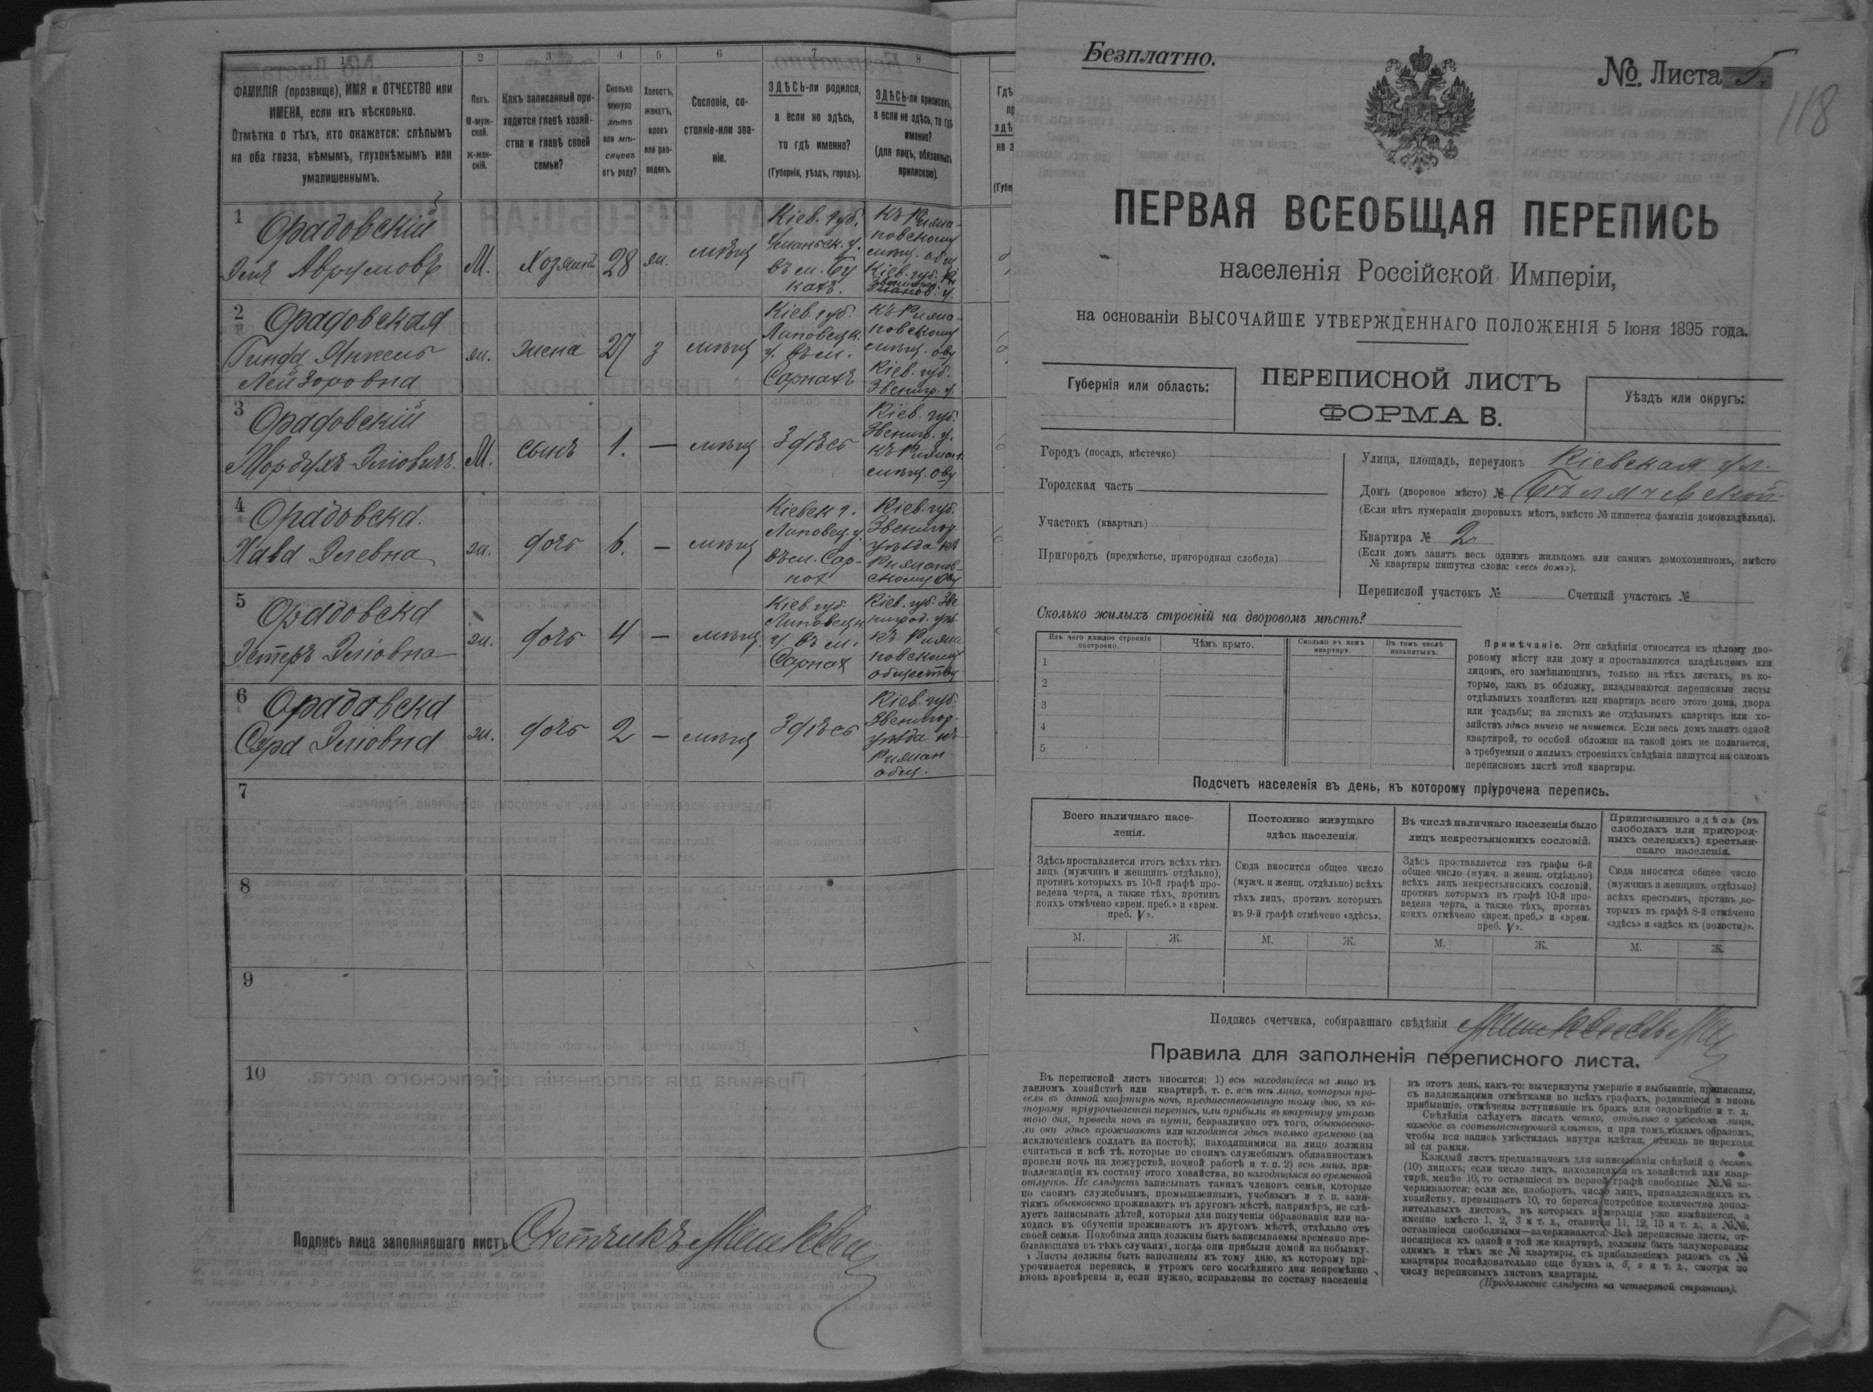 1 2 3 4 5 6 7 8
ФАМИЛІЯ (прозвище), ИМЯ и ОТЧЕСТВО или
ИМЕНА, если ихъ нѣсколько.
Отмѣтка о тѣхъ, кто окажется: слѣпымъ
на оба глаза, нѣмымъ, глухонѣмымъ или
умалишеннымъ.
Полъ.
М-муж-
ской.
Ж-жен-
скій.
Какъ записанный при-
ходится главѣ хозяй-
ства и главѣ своей
семьи?
Сколько
минуло
лѣтъ
или мѣ-
сяцевъ
отъ роду?
Холостъ,
женатъ,
вдовъ
или раз-
веденъ.
Сословіе, со-
стояніе или зва-
ніе.
ЗДѢСЬ-ли родился,
а если не здѣсь,
то гдѣ именно?
(Губернія, уѣздъ, городъ).
ЗДѢСЬ-ли приписанъ,
а если не здѣсь, то гдѣ
именно?
(для лицъ, обязанныхъ
припискою).
1
Орадовскій
Аврумовъ
М.
Хозяинъ
28
мѣщ
Кіев. губ.
Уманск. у.
въ м. Бу
Кіев. губ.
2
Орадовская
Янкель
Лейзоровна
ж.
жена
27
з
мѣщ
Кіев. губ.
Липовецк.
у. въ м.
Сарнахъ
Кіев. губ.
Звениг. у.
3
Орадовскій
Мордухъ Эліовичъ.
М.
сынъ
1.
—
мѣщ
Здѣсь
Кіев. губ.
Звениг. у.
4
Орадовска.
Хава Элевна
ж.
дочь
6.
—
мѣщ
Кіевск г.
Липовец. у.
въ м. Сар-
нах
Кіев. губ.
Звенигор.
уѣзда къ
5
Орадовска
Эстеръ Эліовна
ж.
дочь
4
—
мѣщ.
Кіев. губ.
Липовецк
у. въ м.
Сарнах
Кіев. губ. Зве
нигород. уѣз
обществу
6
Орадовска
Сура Эліовна
ж.
дочь
2
—
мѣщ
Здѣсь
Кіев. губ.
Звенигор.
уѣзда къ
общ.
7
8
9
10
Подпись лица заполнявшаго листъ
Счетчикъ
Безплатно.
№ Листа 5.
118
ПЕРВАЯ ВСЕОБЩАЯ ПЕРЕПИСЬ
населенія Россійской Имперіи,
на основаніи ВЫСОЧАЙШЕ УТВЕРЖДЕННАГО ПОЛОЖЕНІЯ 5 Іюня 1895 года.
Губернія или область:
ПЕРЕПИСНОЙ ЛИСТЪ
ФОРМА В.
Уѣздъ или округъ:
Городъ (посадъ, мѣстечко)
Городская часть
Участокъ (кварталъ)
Пригородъ (предмѣстье, пригородная слобода)
Улица, площадь, переулокъ Кіевская ул.
Домъ (дворовое мѣсто) №
(Если нѣтъ нумераціи дворовыхъ мѣстъ, вмѣсто № пишется фамилія домовладѣльца).
Квартира № 2
(Если домъ занятъ весь однимъ жильцомъ или самимъ домохозяиномъ, вмѣсто
№ квартиры пишутся слова: «весь домъ»).
Переписной участокъ № Счетный участокъ №
Сколько жилыхъ строеній на дворовомъ мѣстѣ?
Изъ чего каждое строеніе
построено.
Чѣмъ крыто.
Сколько въ немъ
квартиръ.
Въ томъ числѣ
незанятыхъ.
1
2
3
4
5
Примѣчаніе. Эти свѣдѣнія относятся къ цѣлому дво-
ровому мѣсту или дому и проставляются владѣльцемъ или
лицомъ, его замѣняющимъ, только на тѣхъ листахъ, въ ко-
торые, какъ въ обложку, вкладываются переписные листы
отдѣльныхъ хозяйствъ или квартиръ всего этого дома, двора
или усадьбы; на листахъ же отдѣльныхъ квартиръ или хо-
зяйствъ здѣсь ничего не пишется. Если весь домъ занятъ одной
квартирой, то особой обложки на такой домъ не полагается,
а требуемыя о жилыхъ строеніяхъ свѣдѣнія пишутся на самомъ
переписномъ листѣ этой квартиры.
Подсчетъ населенія въ день, къ которому пріурочена перепись.
Всего наличнаго насе-
ленія.
Здѣсь проставляется итогъ всѣхъ тѣхъ
лицъ (мужчинъ и женщинъ отдѣльно),
противъ которыхъ въ 10-й графѣ про-
ведена черта, а также тѣхъ, противъ
коихъ отмѣчено «врем. преб.» и «врем.
преб. V».
Постоянно живущаго
здѣсь населенія.
Сюда вносится общее число
(мужч. и женщ. отдѣльно) всѣхъ
тѣхъ лицъ, противъ которыхъ
въ 9-й графѣ отмѣчено «здѣсь».
Въ числѣ наличнаго населенія было
лицъ некрестьянскихъ сословій.
Здѣсь проставляется изъ графы 6-й
общее число (мужч. и женщ. отдѣльно)
всѣхъ лицъ некрестьянскихъ сословій,
противъ которыхъ въ графѣ 10-й про-
ведена черта, а также тѣхъ, противъ
коихъ отмѣчено «врем. преб.» и «врем.
преб. V».
Приписаннаго здѣсь (въ
слободахъ или пригород-
ныхъ селеніяхъ) крестьян-
скаго населенія.
Сюда вносится общее число
(мужчинъ и женщинъ отдѣльно)
всѣхъ крестьянъ, противъ ко-
торыхъ въ графѣ 8-й отмѣчено
«здѣсь» и «здѣсь къ (волости)».
М. Ж. М. Ж. М. Ж. М. Ж.
Подпись счетчика, собиравшаго свѣдѣнія
Правила для заполненія переписного листа.
Въ переписной листъ вносятся: 1) всѣ находящіеся на лицо въ
данномъ хозяйствѣ или квартирѣ, т. е. всѣ тѣ лица, которыя про-
вели въ данной квартирѣ ночь, предшествовавшую тому дню, къ ко-
торому пріурочивается перепись, или прибыли въ квартиру утромъ
того дня, проведя ночь въ пути, безразлично отъ того, обыкновенно-
ли они здѣсь проживаютъ или находятся здѣсь только временно (за
исключеніемъ солдатъ на постоѣ); находящимися на лицо должны
считаться и всѣ тѣ, которые по своимъ служебнымъ обязанностямъ
провели ночь на дежурствѣ, ночной работѣ и т. п. 2) всѣ лица, при-
надлежащія къ составу этого хозяйства, но находящіяся во временной
отлучкѣ. Не слѣдуетъ записывать такихъ членовъ семьи, которые
по своимъ служебнымъ, промышленнымъ, учебнымъ и т. п. заня-
тіямъ обыкновенно проживаютъ въ другомъ мѣстѣ, напримѣръ, не слѣ-
дуетъ записывать дѣтей, которыя для полученія образованія или на-
ходясь въ обученіи проживаютъ въ другомъ мѣстѣ, отдѣльно отъ
своей семьи. Подобныя лица должны быть записываемы временно пре-
бывающими въ тѣхъ случаяхъ, когда они прибыли домой на побывку.
Листы должны быть заполнены къ тому дню, къ которому прі-
урочивается перепись, и утромъ сего послѣдняго дня непремѣнно
вновь провѣрены и, если нужно, исправлены по составу населенія
въ этотъ день, какъ-то: вычеркнуты умершіе и выбывшіе, приписаны,
съ надлежащими отмѣтками во всѣхъ графахъ, родившіеся и вновь
прибывшіе, отмѣчены вступившіе въ бракъ или овдовѣвшіе и т. д.
Свѣдѣнія слѣдуетъ писать четко, отдѣльно о каждомъ лицѣ,
каждое въ соотвѣтствующей клѣткѣ, и при томъ такимъ образомъ,
чтобы вся запись умѣстилась внутри клѣтки, отнюдь не переходя
за ея рамки.
Каждый листъ предназначенъ для записыванія свѣдѣній о десяти
(10) лицахъ; если число лицъ, находящихся въ хозяйствѣ или квар-
тирѣ, менѣе 10, то оставшіеся въ первой графѣ свободные №№ за-
черкиваются; если же, наоборотъ, число лицъ, принадлежащихъ къ
хозяйству, превышаетъ 10, то берется потребное количество допол-
нительныхъ листовъ, въ которыхъ нумерація уже измѣняется, а
именно вмѣсто 1, 2, 3 и т. д., ставится 11, 12, 13 и т. д., а №№,
оставшіеся свободными—зачеркиваются. Всѣ переписные листы, от-
носящіеся къ одной и той же квартирѣ, должны быть занумерованы
однимъ и тѣмъ же № квартиры, съ прибавленіемъ рядомъ съ №
квартиры послѣдовательно еще буквъ а, б, в и т. д., смотря по
числу переписныхъ листовъ квартиры.
(Продолженіе слѣдуетъ на четвертой страницѣ).